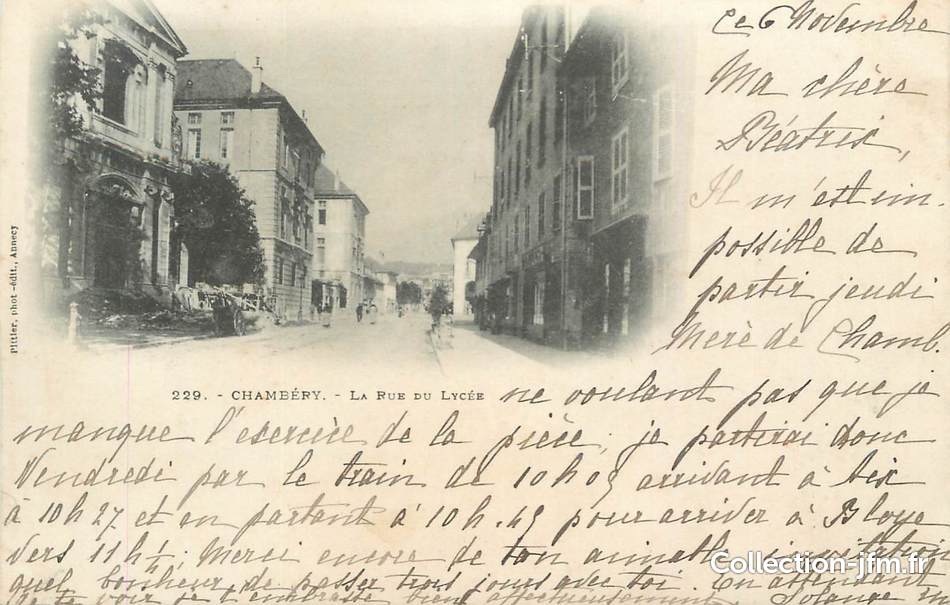 Ce 6 Novembre
Ma chère
Béatrix,
Il m'est im-
possible de
partir jeudi
Merè de Chamb.
Plttier, phot-édit., Annecy
229. - CHAMBÉRY. - LA RUE DU LYCÉE
ne voulant pas que je
manque l'exercice de la pièce, je partirai donc
Vendredi par le train de 10h05 arrivant à Aix
à 10h27 et en partant à 10h.45 pour arriver à Bloye
vers 11h¼. Merci encore de ton aimable invitation
quel bonheur de passer trois jours avec toi. En attendant
de te voir je t'embrasse bien affectueusement Solange
Collection-jfm.fr